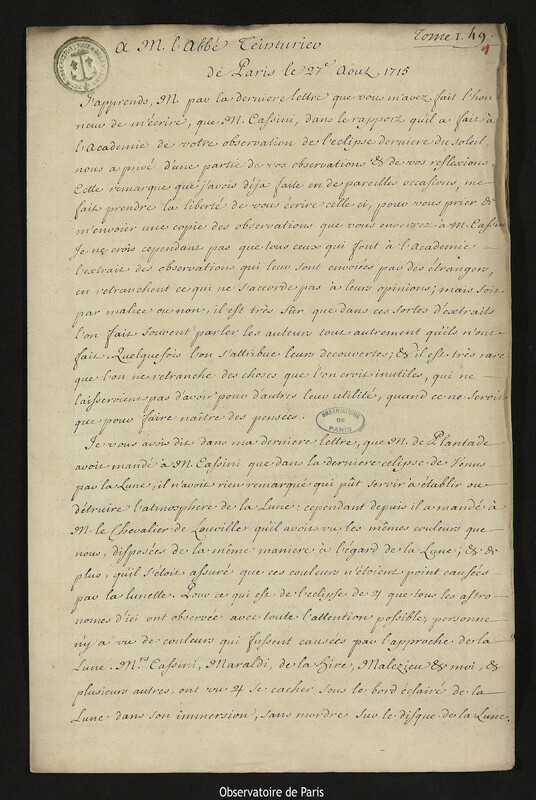 Tome I. 49
1
A M. l'Abbé Teinturier
de Paris le 27e Aout 1715
J'apprends, M. par la derniere lettre que vous m'avez fait l'hon-
neur de m'écrire, que M. Cassini, dans le rapport qu'il a fait à
l'Academie de votre observation de l'eclipse derniere du soleil,
nous a privé d'une partie de vos observations & de vos reflexions.
Cette remarque que j'avois déja faite en de pareilles occasions, me
fait prendre la liberté de vous écrire celle ci, pour vous prier de
m'envoier une copie des observations que vous enverrez à M. Cassini
Je ne crois cependant pas que tous ceux qui font à l'Academie
l'extrait des observations qui leur sont envoiées par des étrangers,
en retranchent ce qui ne s'accorde pas à leurs opinions; mais soit
par malice ou non, il est très sûr que dans ces sortes d'extraits
l'on fait souvent parler les auteurs tout autrement qu'ils n'ont
fait. Quelquefois l'on s'attribue leurs decouvertes; & il est très rare
que l'on ne retranche des choses que l'on croit inutiles, qui ne
laisseroient pas d'avoir pour d'autres leur utilité, quand ce ne seroit
que pour faire naître des pensées.
OBSERVATOIRE
DE
PARIS
Je vous avois dit dans ma derniere lettre, que M. de Plantade
avoit mandé à M. Cassini que dans la derniere eclipse de Venus
par la Lune, il n'avoit rien remarqué qui pût servir à établir ou
détruire l'atmosphere de la Lune: cependant depuis il a mandé à
M. le Chevalier de Louville qu'il avoit vu les mêmes couleurs que
nous, disposées de la même maniere à l'égard de la Lune, & de
plus, qu'il s'étoit assuré que ces couleurs n'étoient point causées
par la lunette. Pour ce qui est de l'eclipse de ♃ que tous les astro-
nomes d'ici ont observée avec toute l'attention possible, personne
n'y a vu de couleurs qui fussent causées par l'approche de la
Lune. Mrs Cassini, Maraldi, de la Hire, Malezieu & moi, &
plusieurs autres, ont vu ♃ se cacher sous le bord éclairé de la
Lune dans son immersion, sans mordre sur le disque de la Lune.
Observatoire de Paris